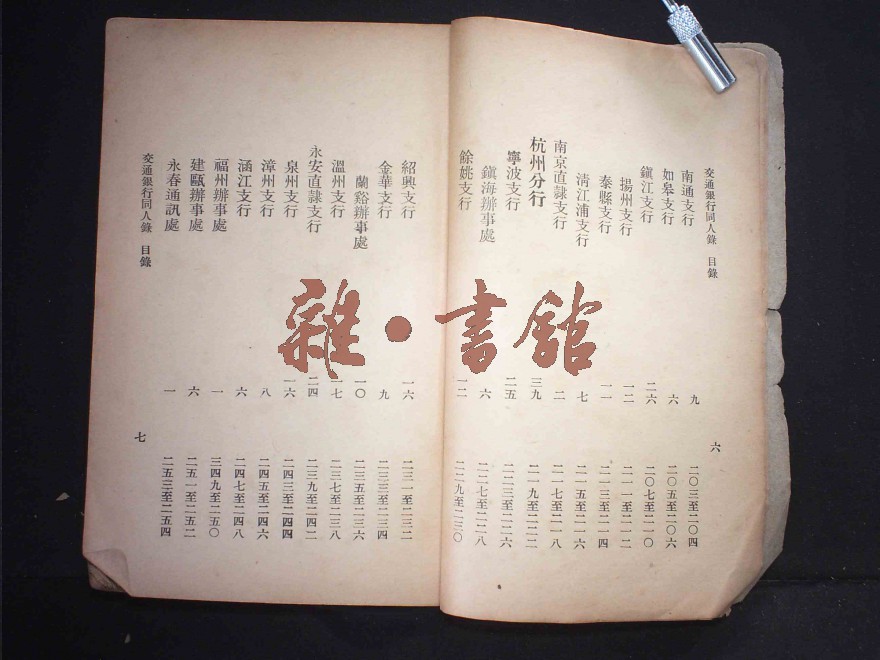 交通銀行同人錄　目錄
六
南通支行　九　二〇三至二〇四
如皋支行　六　二〇五至二〇六
鎭江支行　二六　二〇七至二一〇
揚州支行　一二　二一一至二一二
泰縣支行　一一　二一三至二一四
淸江浦支行　七　二一五至二一六
南京直隷支行　二　二一七至二一八
杭州分行　三九　二一九至二二二
寧波支行　二五　二二三至二二六
鎭海辦事處　六　二二七至二二八
餘姚支行　一二　二二九至二三〇
紹興支行　一六　二三一至二三二
金華支行　九　二三三至二三四
蘭谿辦事處　一〇　二三五至二三六
溫州支行　一七　二三七至二三八
永安直隷支行　二四　二三九至二四二
泉州支行　一六　二四三至二四四
漳州支行　八　二四五至二四六
涵江支行　六　二四七至二四八
福州辦事處　一　三四九至二五〇
建甌辦事處　六　二五一至二五二
永春通訊處　一　二五三至二五四
交通銀行同人錄　目錄
七
雜·書館